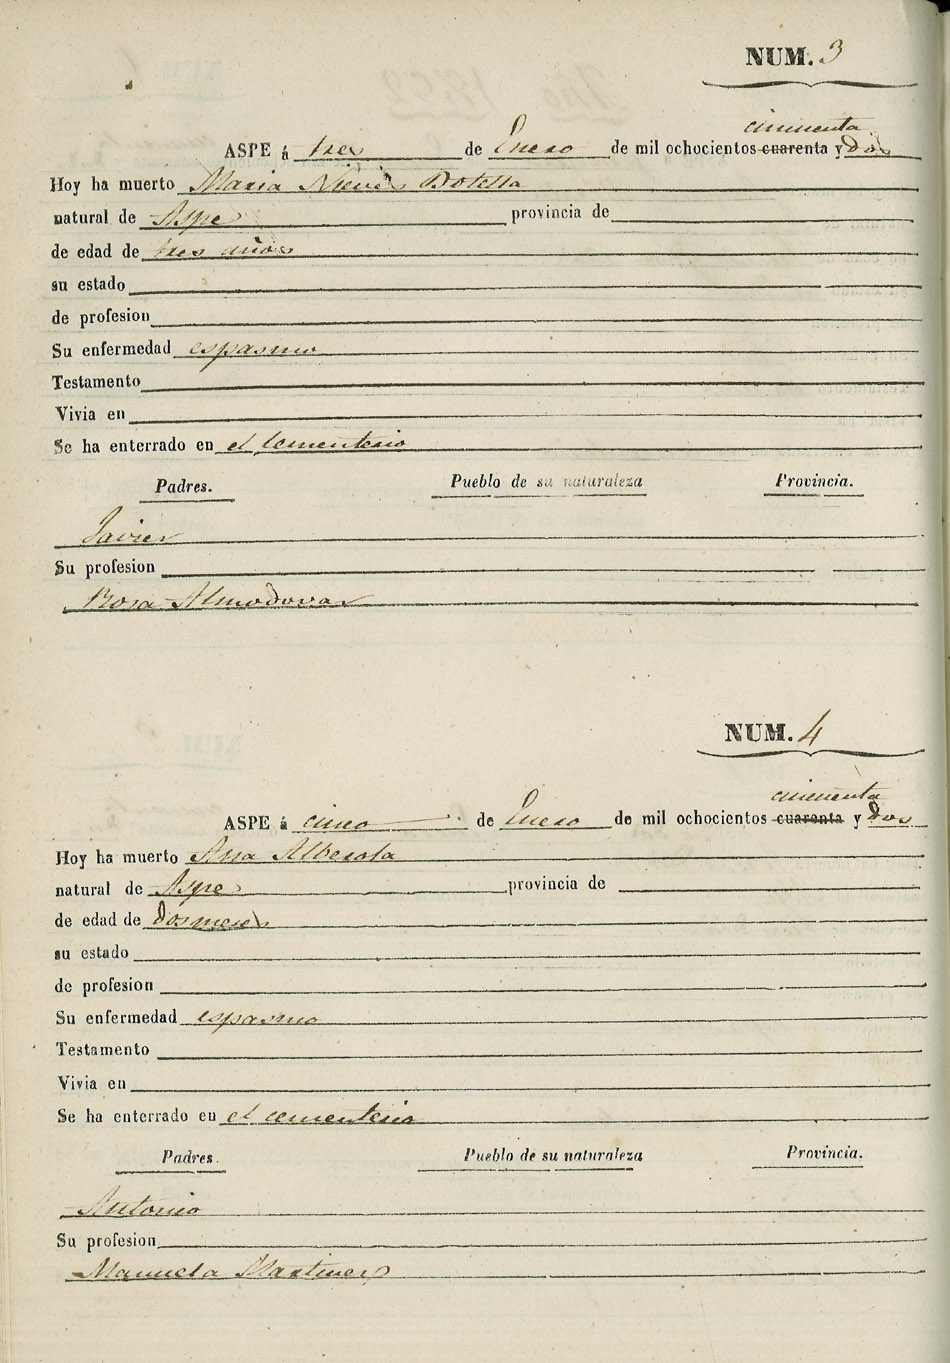 NUM. 3
cincuenta
ASPE á tres de Enero de mil ochocientos cuarenta y dos
Hoy ha muerto Maria Nieves Botella
natural de Aspe provincia de
de edad de tres años
su estado
de profesion
Su enfermedad espasmo
Testamento
Vivia en
Se ha enterrado en el Cementerio
Padres. Pueblo de su naturaleza Provincia.
Javier
Su profesion
Rosa Almodovar
NUM. 4
cincuenta
ASPE á cinco de Enero de mil ochocientos cuarenta y dos
Hoy ha muerto Ana Alberola
natural de Aspe provincia de
de edad de dos meses
su estado
de profesion
Su enfermedad espasmo
Testamento
Vivia en
Se ha enterrado en el cementerio
Padres. Pueblo de su naturaleza Provincia.
Antonio
Su profesion
Manuela Martinez